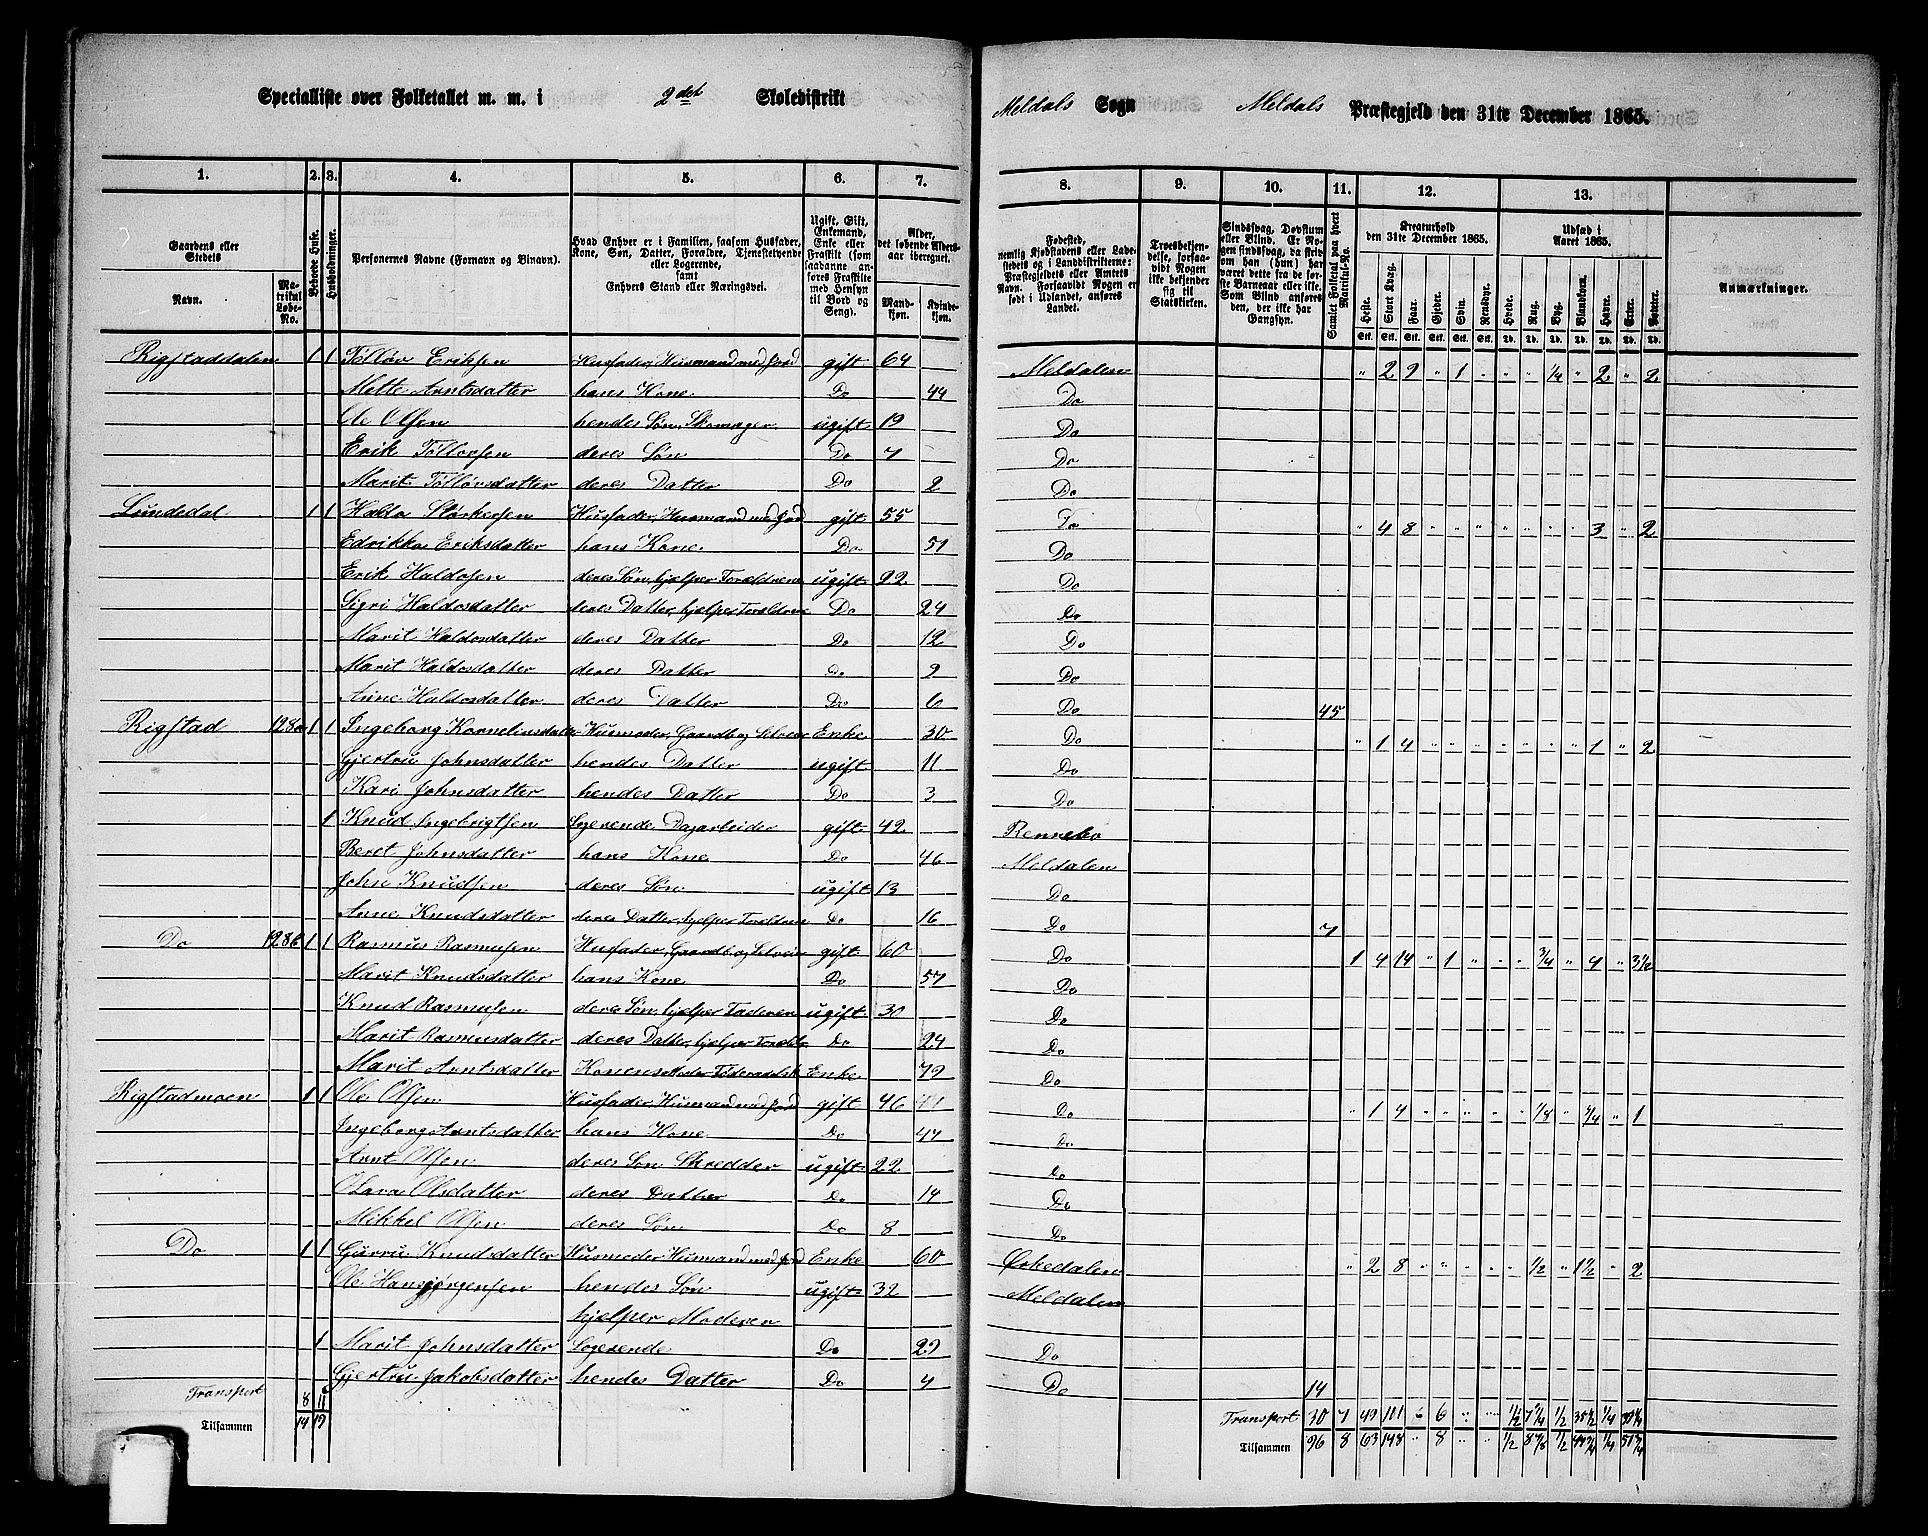 Specialliste over Folketallet m. m. i 2det Skoledistrikt Meldals Sogn Meldals Præstegjeld den 31te December 1865.
1. 2. 3. 4. 5. 6. 7. 8. 9. 10. 11. 12. 13.
Gaardens eller Stedets
Navn.
Matrikul Løbe-No.
Beboede Huse.
Husholdninger.
Personernes Navne (Fornavn og Binavn).
Hvad Enhver er i Familien, saasom Husfader, Kone, Søn, Datter, Forældre, Tjenestetyende eller Logerende,
samt
Enhvers Stand eller Næringsvei.
Ugift, Gift, Enkemand, Enke eller Fraskilt (som saadanne anføres Fraskilte med Hensyn til Bord og Seng).
Alder, det løbende Alders-aar iberegnet.
Mandkjøn.
Kvindekjøn.
Fødested,
nemlig Kjøbstadens eller Ladestedets og i Landdistrikterne: Præstegjeldets eller Amtets Navn. Forsaavidt Nogen er født i Udlandet, anføres Landet.
Troesbekjendelse, forsaavidt Nogen ikke bekjender sig til Statskirken.
Sindssvag, Døvstum eller Blind. Er Nogen sindssvag, da skrives om han (hun) har været dette fra de første Barneaar eller ikke. Som Blind anføres den, der ikke har Gangsyn.
Samlet Folketal paa hvert Matrikul-No.
Kreaturhold den 31te December 1865.
Heste. Stort Kvæg. Faar. Gjeder. Svin. Rensdyr.
Udsæd i Aaret 1865.
Hvede. Rug. Byg. Blandkorn. Havre. Erter. Poteter.
Anmærkninger.
Rigstaddalen 1 1 Tølløv Eriksen Husfader, Husmand med Jord gift 64 Meldalen " 2 9 " 1 " " " 1/4 " 2 " 2
Mette Arntsdatter hans Kone Do 44 Do
Ole Olsen hendes Søn, Skomager ugift 19 Do
Erik Tølløvsen deres Søn Do 7 Do
Marit Tølløvsdatter deres Datter Do 2 Do
Lundedal 1 1 Haldo Størkersen Husfader, Husmand med Jord gift 55 Do " 4 8 " " " " " " " 3 " 2
Edrikka Eriksdatter hans Kone Do 51 Do
Erik Haldosen deres Søn, hjelper Forældrene ugift 22 Do
Sigri Haldosdatter deres Datter, hjelper Forældrene Do 24 Do
Marit Haldosdatter deres Datter Do 12 Do
Marit Haldosdatter deres Datter Do 9 Do
Anne Haldosdatter deres Datter Do 6 Do 45
Rigstad 128a 1 1 Ingeborg Korneliusdatter Husmoder, Gaardb og Selveier Enke 30 Do " 1 4 " " " " " " " 1 " 2
Gjertru Johnsdatter hendes Datter ugift 11 Do
Kari Johnsdatter hendes Datter Do 3 Do
1 Knud Ingebrigtsen Logerende Dagarbeider gift 42 Rennebo
Beret Johnsdatter hans Kone Do 46 Meldalen
John Knudsen deres Søn ugift 13 Do
Anne Knudsdatter deres Datter, hjelper Forældrene Do 16 Do 7
Do 128b 1 1 Rasmus Rasmusen Husfader, Gaardb og Selveier gift 60 Do 1 4 14 " 1 " " " 3/4 " 4 " 3 1/2
Marit Knudsdatter hans Kone Do 57 Do
Knud Rasmusen deres Søn, hjelper Faderen ugift 30 Do
Marit Rasmusdatter deres Datter, hjelper Foreldre Do 24 Do
Marit Arntsdatter Konens Moder Føderaadsk Enke 79 Do
Rigstadmoen 1 1 Ole Olsen Husfader, Husmand med Jord gift 46 Do " 1 4 " " " " " 1/8 " 3/4 " 1
Ingeborg Arntsdatter hans Kone Do 47 Do
Arnt Olsen deres Søn Skredder ugift 22 Do
Olava Olsdatter deres Datter Do 14 Do
Mikkel Olsen deres Søn Do 8 Do
Do 1 1 Gurru Knudsdatter Husmoder Husmand med Jord Enke 60 Ørkedalen " 2 8 " " " " " 1/2 " 1 1/2 " 2
Ole Hansjørgensen hendes Søn ugift 32 Meldalen
hjelper Moderen
1 Marit Johnsdatter Logerende Do 29 Do
Gjertru Jakobsdatter hendes Datter Do 4 Do 14
Transport 8 11 Transport 30 7 49 101 " 6 " " 1/2 7 1/4 1/2 1/4
Tilsammen 14 19 Tilsammen 96 8 63 148 " 8 " " 1/2 8 7/8 1/2 1/4